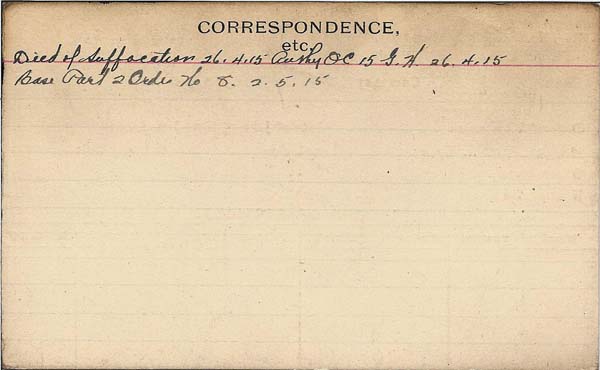 CORRESPONDENCE,
etc.
Died of Suffocation 26.4.15 OC 15 G.H. 26.4.15
Base Part 2 Orde No 8. 2.5.15